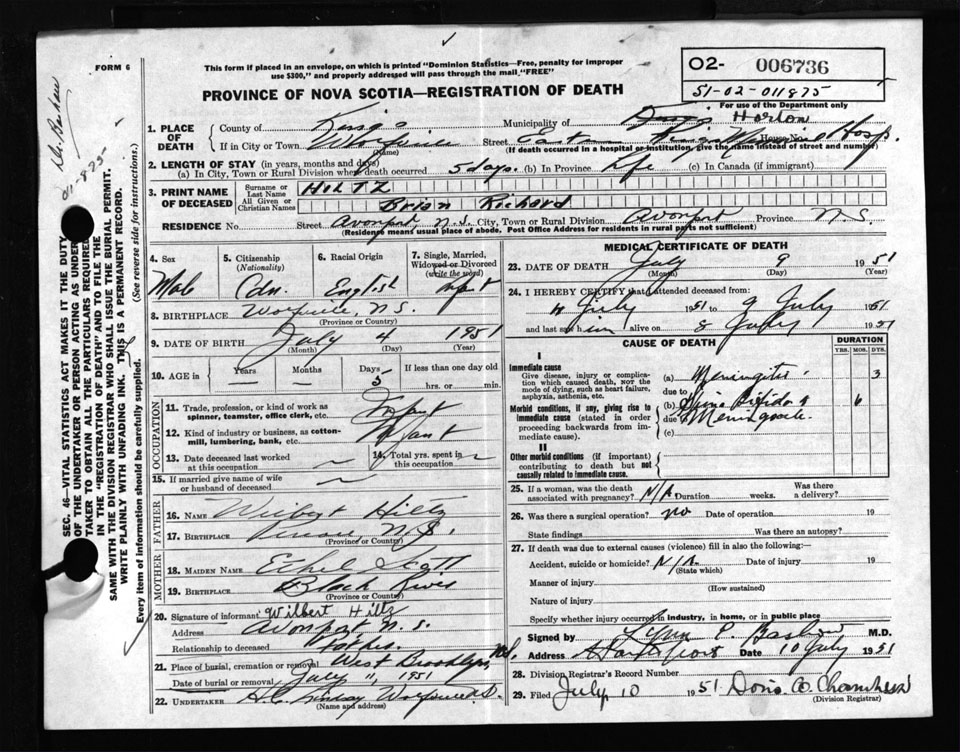 FORM 6
This form if placed in an envelope, on which is printed "Dominion Statistics—Free, penalty for improper
use $300," and properly addressed will pass through the mail "FREE"
PROVINCE OF NOVA SCOTIA—REGISTRATION OF DEATH
O2- 006736
51-02-011875
For use of the Department only
1. PLACE OF DEATH
County of Kings Municipality of Kings Horton
If in City or Town Wolfville Street Eastern Kings Memorial Hosp. House No.
(Name) (If death occurred in a hospital or institution, give the name instead of street and number)
2. LENGTH OF STAY (in years, months and days)
(a) In City, Town or Rural Division where death occurred 5 days. (b) In Province Life (c) In Canada (if immigrant)
3. PRINT NAME OF DECEASED
Surname or Last Name HILTZ
All Given or Christian Names Brian Richard
RESIDENCE No. Street Avonport, N.S. City, Town or Rural Division Avonport Province N.S.
(Residence means usual place of abode. Post Office Address for residents in rural parts not sufficient)
4. Sex
Male
5. Citizenship
(Nationality)
Cdn.
6. Racial Origin
English
7. Single, Married,
Widowed or Divorced
(write the word)
Infant
8. BIRTHPLACE Wolfville, N.S.
(Province or Country)
9. DATE OF BIRTH July 4 1951
(Month) (Day) (Year)
10. AGE in
Years Months Days If less than one day old
5 hrs. or min.
OCCUPATION
11. Trade, profession, or kind of work as
spinner, teamster, office clerk, etc. Infant
12. Kind of industry or business, as cotton-
mill, lumbering, bank, etc. Infant
13. Date deceased last worked
at this occupation
14. Total yrs. spent in
this occupation
15. If married give name of wife
or husband of deceased
FATHER
16. NAME Wilbert Hiltz
17. BIRTHPLACE N.S.
(Province or Country)
MOTHER
18. MAIDEN NAME Ethel Scott
19. BIRTHPLACE Black River
(Province or Country)
20. Signature of informant Wilbert Hiltz
Address Avonport N.S.
Relationship to deceased Father
21. Place of burial, cremation or removal West Brooklyn, N.S.
Date of burial or removal July 11, 1951
22. UNDERTAKER H.C. Lindsay Wolfville N.S.
(Name and address)
MEDICAL CERTIFICATE OF DEATH
23. DATE OF DEATH July 9 1951
(Month) (Day) (Year)
24. I HEREBY CERTIFY that I attended deceased from:
4 July 1951 to 9 July 1951
and last saw him alive on 8 July 1951
CAUSE OF DEATH
DURATION
YRS. MOS. DYS.
I
Immediate cause
Give disease, injury or complica-
tion which caused death, NOT the
mode of dying, such as heart failure,
asphyxia, asthenia, etc.
(a) Meningitis 3
due to
Morbid conditions, if any, giving rise to
immediate cause (stated in order
proceeding backwards from im-
mediate cause).
(b) Spina Bifida & 6
due Meningocele
(c)
II
Other morbid conditions (if important)
contributing to death but not
causally related to immediate cause.
25. If a woman, was the death
associated with pregnancy? N/A Duration weeks. Was there
a delivery?
26. Was there a surgical operation? no Date of operation 19
State findings Was there an autopsy?
27. If death was due to external causes (violence) fill in also the following:—
Accident, suicide or homicide? N/A Date of injury 19
(State which)
Manner of injury
(How sustained)
Nature of injury
Specify whether injury occurred in industry, in home, or in public place
Signed by P. M.D.
Address Hantsport Date 10 July 1951
28. Division Registrar's Record Number
29. Filed July 10 1951 Doris Chambers
(Division Registrar)
SEC. 46—VITAL STATISTICS ACT MAKES IT THE DUTY
OF THE UNDERTAKER OR PERSON ACTING AS UNDER-
TAKER TO OBTAIN ALL THE PARTICULARS REQUIRED
IN THE "REGISTRATION OF DEATH" AND TO FILE THE
SAME WITH THE DIVISION REGISTRAR WHO SHALL ISSUE THE BURIAL PERMIT.
WRITE PLAINLY WITH UNFADING INK. THIS IS A PERMANENT RECORD.
Every item of information should be carefully supplied. (See reverse side for instructions.)